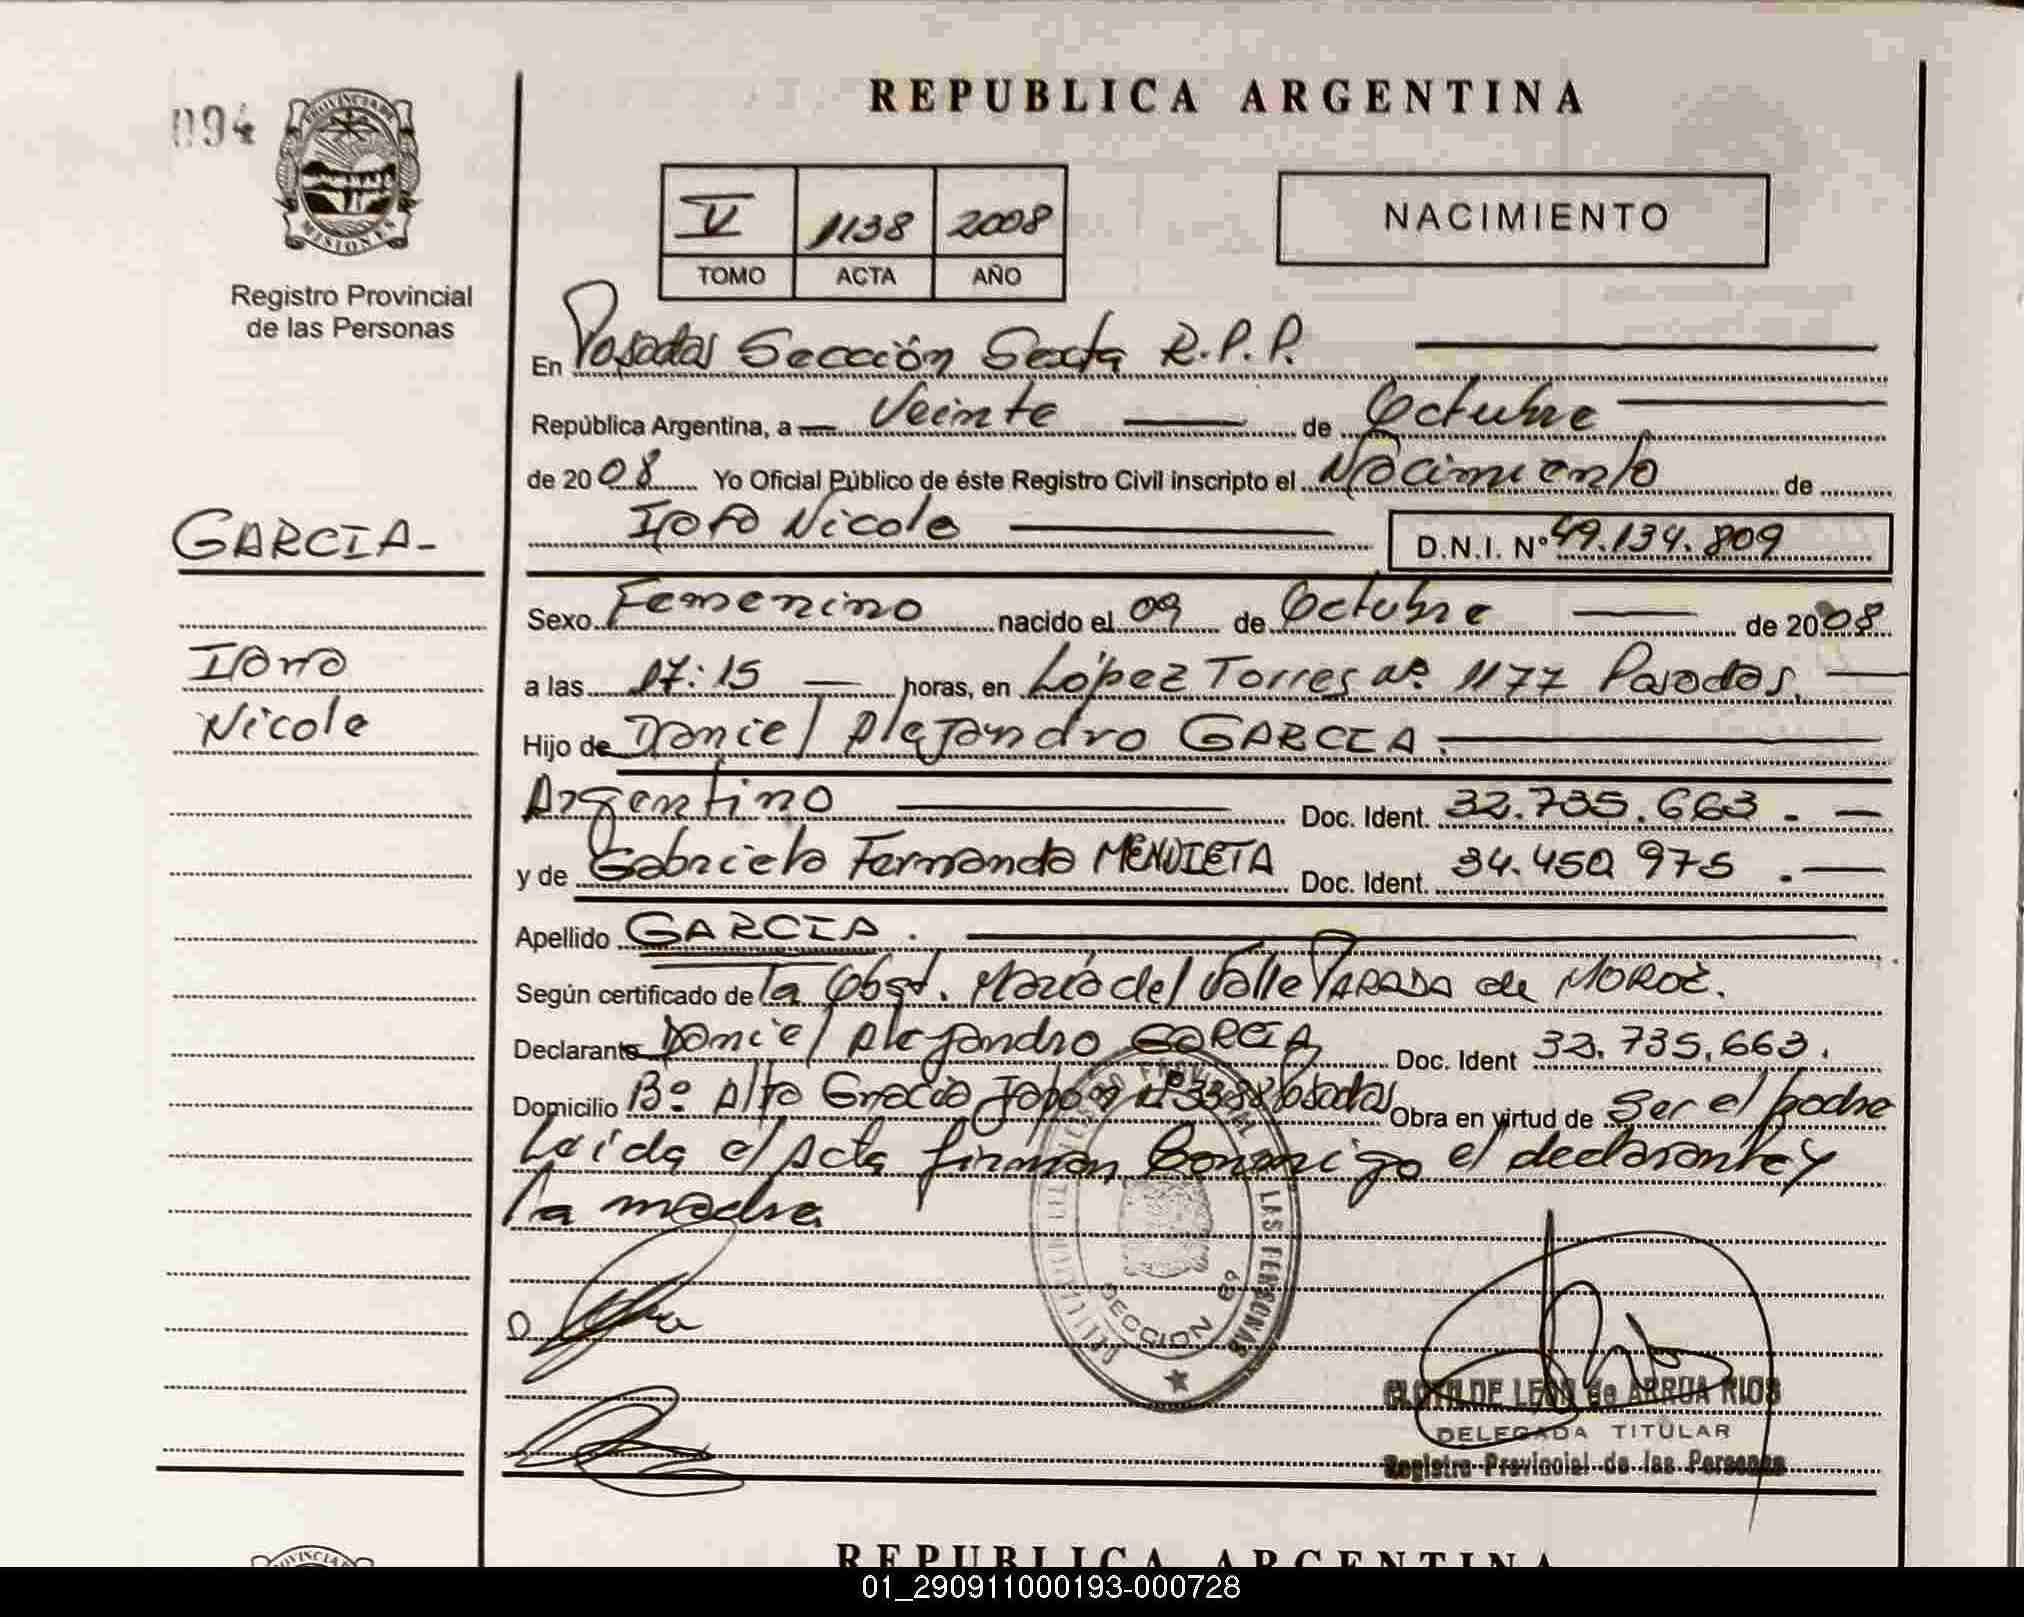 094
PROVINCIA DE
MISIONES
Registro Provincial
de las Personas
REPUBLICA ARGENTINA
V 1138 2008
TOMO ACTA AÑO
NACIMIENTO
En Posadas Sección Sexta R.P.P.
República Argentina, a Veinte de Octubre
de 2008 Yo Oficial Público de éste Registro Civil inscripto el Nacimiento de
Nicole D.N.I. Nº 49.134.809
GARCIA-
Nicole
Sexo Femenino nacido el 09 de Octubre de 2008
a las 17:15 horas, en López Torres nº 1177 Posadas,
Hijo de Daniel Alejandro GARCIA.
Argentino Doc. Ident. 32.735.663. -
y de Gabriela Fernanda MENDIETA Doc. Ident. 34.450.975 . -
Apellido GARCIA.
Según certificado de la Obst. María del Valle PARADA de MOROZ.
Declarante Daniel Alejandro GARCIA Doc. Ident 32.735.663.
Domicilio Bº Alta Gracia Japón nº 3338 Posadas Obra en virtud de Ser el padre
Leída el Acta firman Conmigo el declarante y
la madre
LAS PERSONAS
SECCION 6ª
CLOTILDE LEON de ARRUA RIOS
DELEGADA TITULAR
Registro Provincial de las Personas
REPUBLICA ARGENTINA
01_290911000193-000728